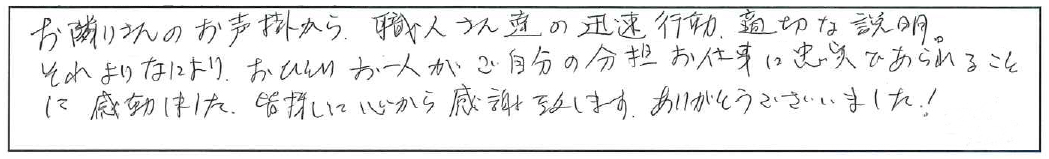 お隣りさんのお声掛から、職人さん達の迅速行動、適切な説明。
それよりなにより、おひとりお一人がご自分の分担お仕事に忠実であられること
に感動しました。皆様に心から感謝致します。ありがとうございました!